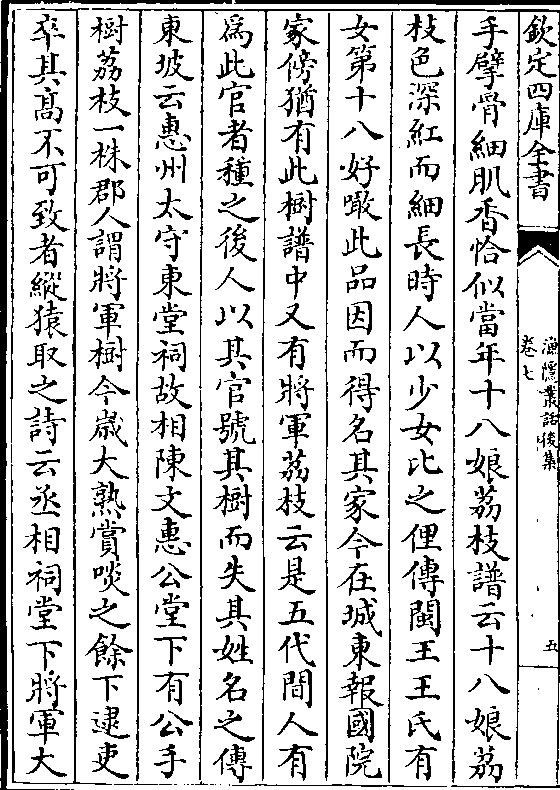 欽定四庫全書
漁隱叢話後集
卷七
五
手擘骨細肌香恰似當年十八娘荔枝譜云十八娘荔
枝色深紅而細長時人以少女比之俚傳閩王王氏有
女第十八好噉此品因而得名其家今在城東報國院
家傍猶有此樹譜中又有將軍荔枝云是五代間人有
為此官者種之後人以其官號其樹而失其姓名之傳
東坡云惠州太守東堂祠故相陳文惠公堂下有公手
樹荔枝一株郡人謂將軍樹今歲大熟賞啖之餘下逮吏
卒其髙不可致者縱猿取之詩云丞相祠堂下將軍大